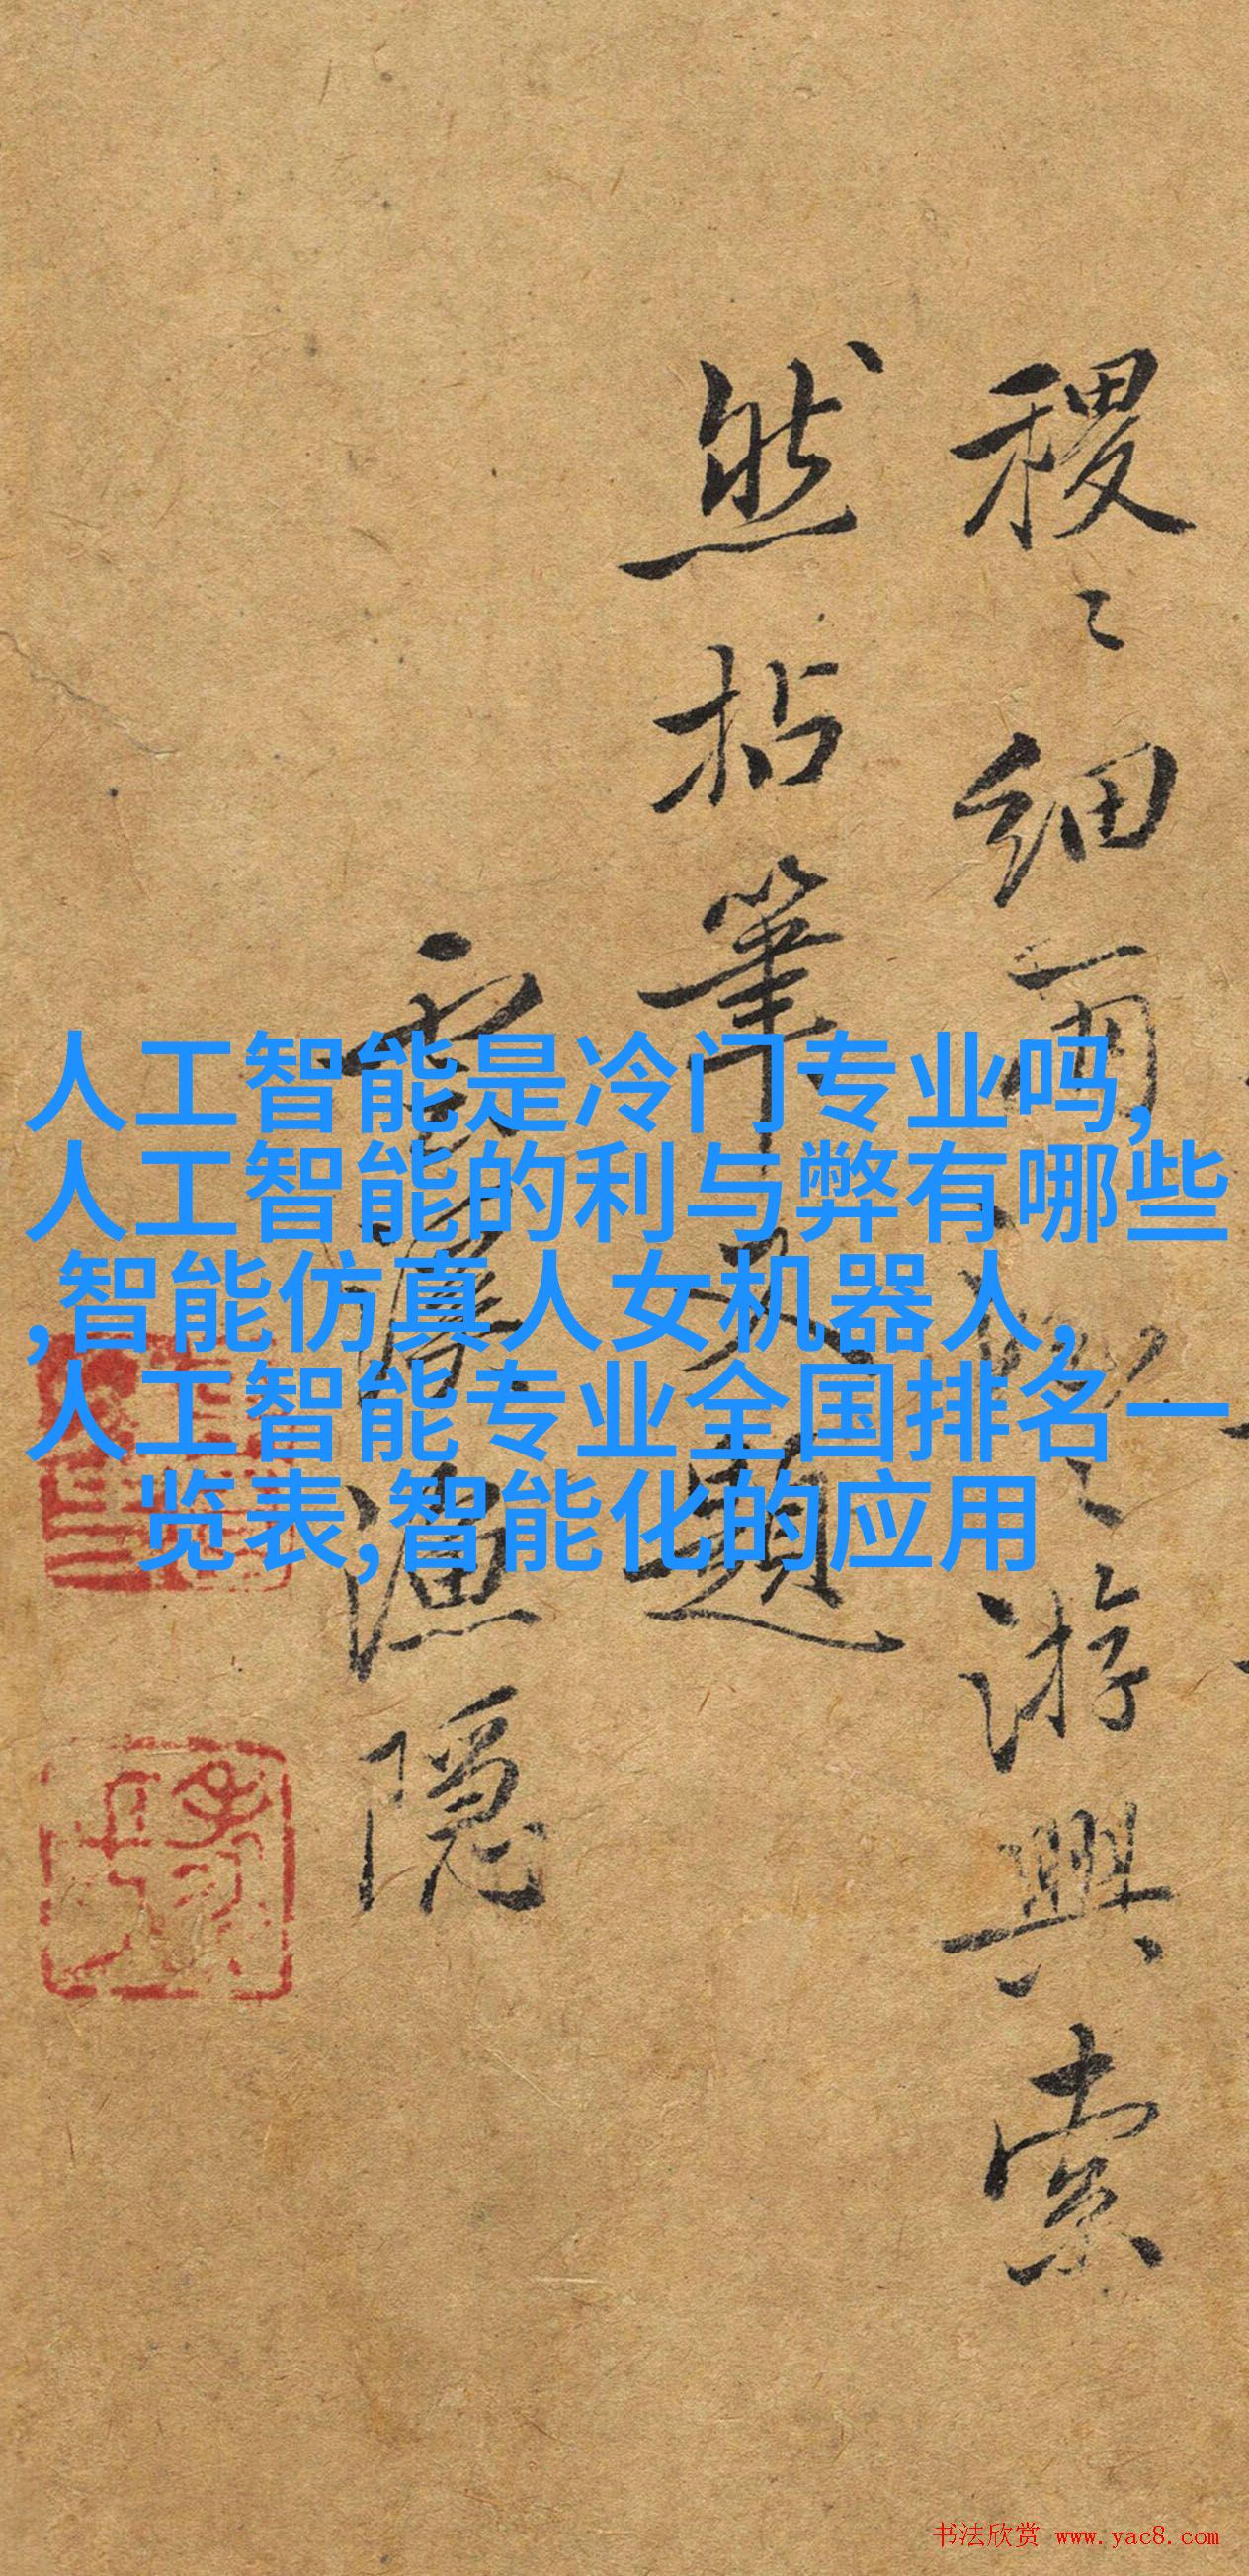 稷〻細雨
游興索
然拈筆又題
雲
漁隱
人工智能是冷门专业吗,
人工智能的利与弊有哪些
,智能仿真人女机器人,
人工智能专业全国排名一
览表,智能化的应用
书法欣赏 www.yac8.com